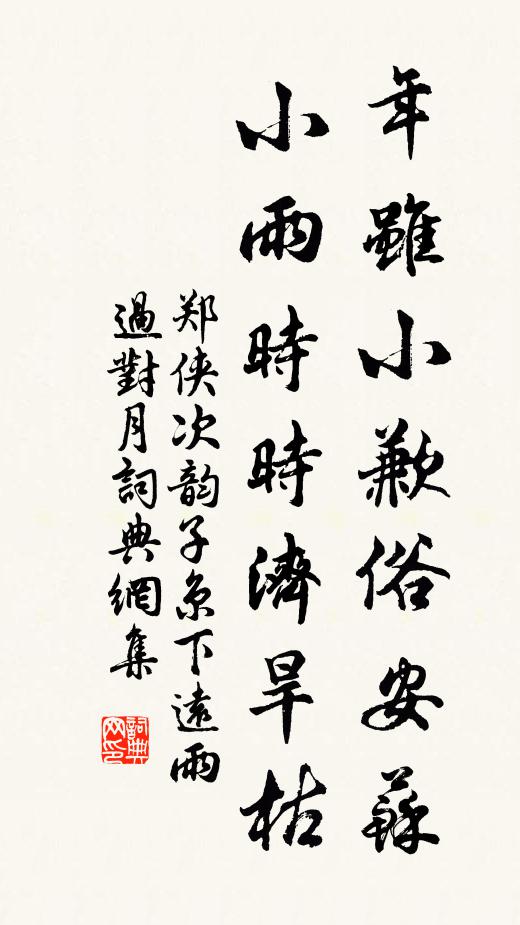 年雖小歉俗安蘇
小雨時時濟旱枯
郑侠次韵子京下遠雨
過對月詞典網集
詞典
网印